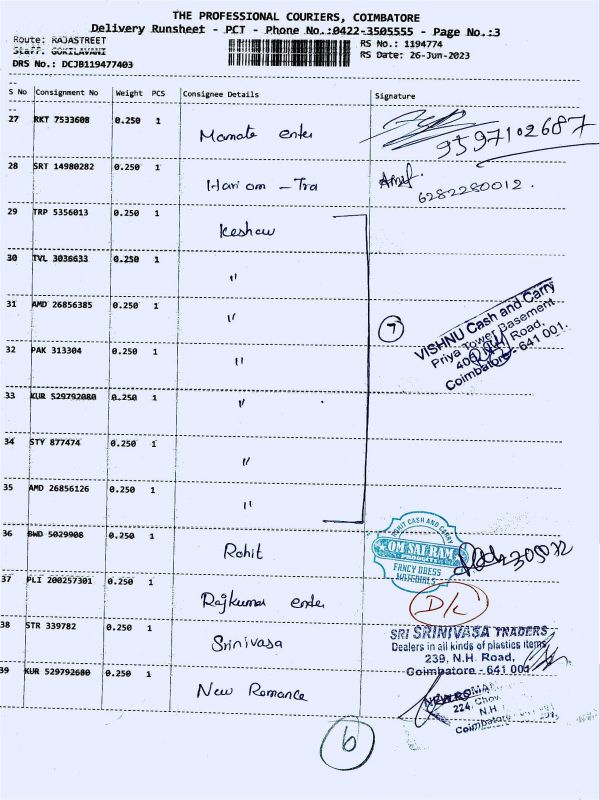 THE PROFESSIONAL COURIERS, COIMBATORE
Delivery Runsheet - PCT - Phone No.:0422-3505555 - Page No.:3
Route: RAJASTREET
Staff: GOKILAVANI
DRS No.: DCJB119477403
RS No.: 1194774
RS Date: 26-Jun-2023
S No Consignment No Weight PCS Consignee Details Signature
27 RKT 7533608 0.250 1 Mamata enter 9597102687
28 SRT 14980282 0.250 1 Hari om - Tra 6282280012.
29 TRP 5356013 0.250 1 Keshav
30 TVL 3036633 0.250 1 "
31 AMD 26856385 0.250 1 "
32 PAK 313304 0.250 1 "
33 KUR 529792080 0.250 1 "
34 STY 877474 0.250 1 "
35 AMD 26856126 0.250 1 "
7
VISHNU Cash and Carry
Priya Tower Basement
N.H. Road,
Coimbatore - 641 001.
36 BWD 5029908 0.250 1 Rohit
ROHIT CASH AND CARRY
OM SAI RAM
PRODUCTS
FANCY DRESS
MATERIALS
37 PLI 200257301 0.250 1 Rajkumar enter D/L
38 STR 339782 0.250 1 Srinivasa
SRI SRINIVASA TRADERS
Dealers in all kinds of plastics items
239, N.H. Road,
Coimbatore - 641 001
39 KUR 529792680 0.250 1 New Romance
224,
N.H.
Coimbatore
6